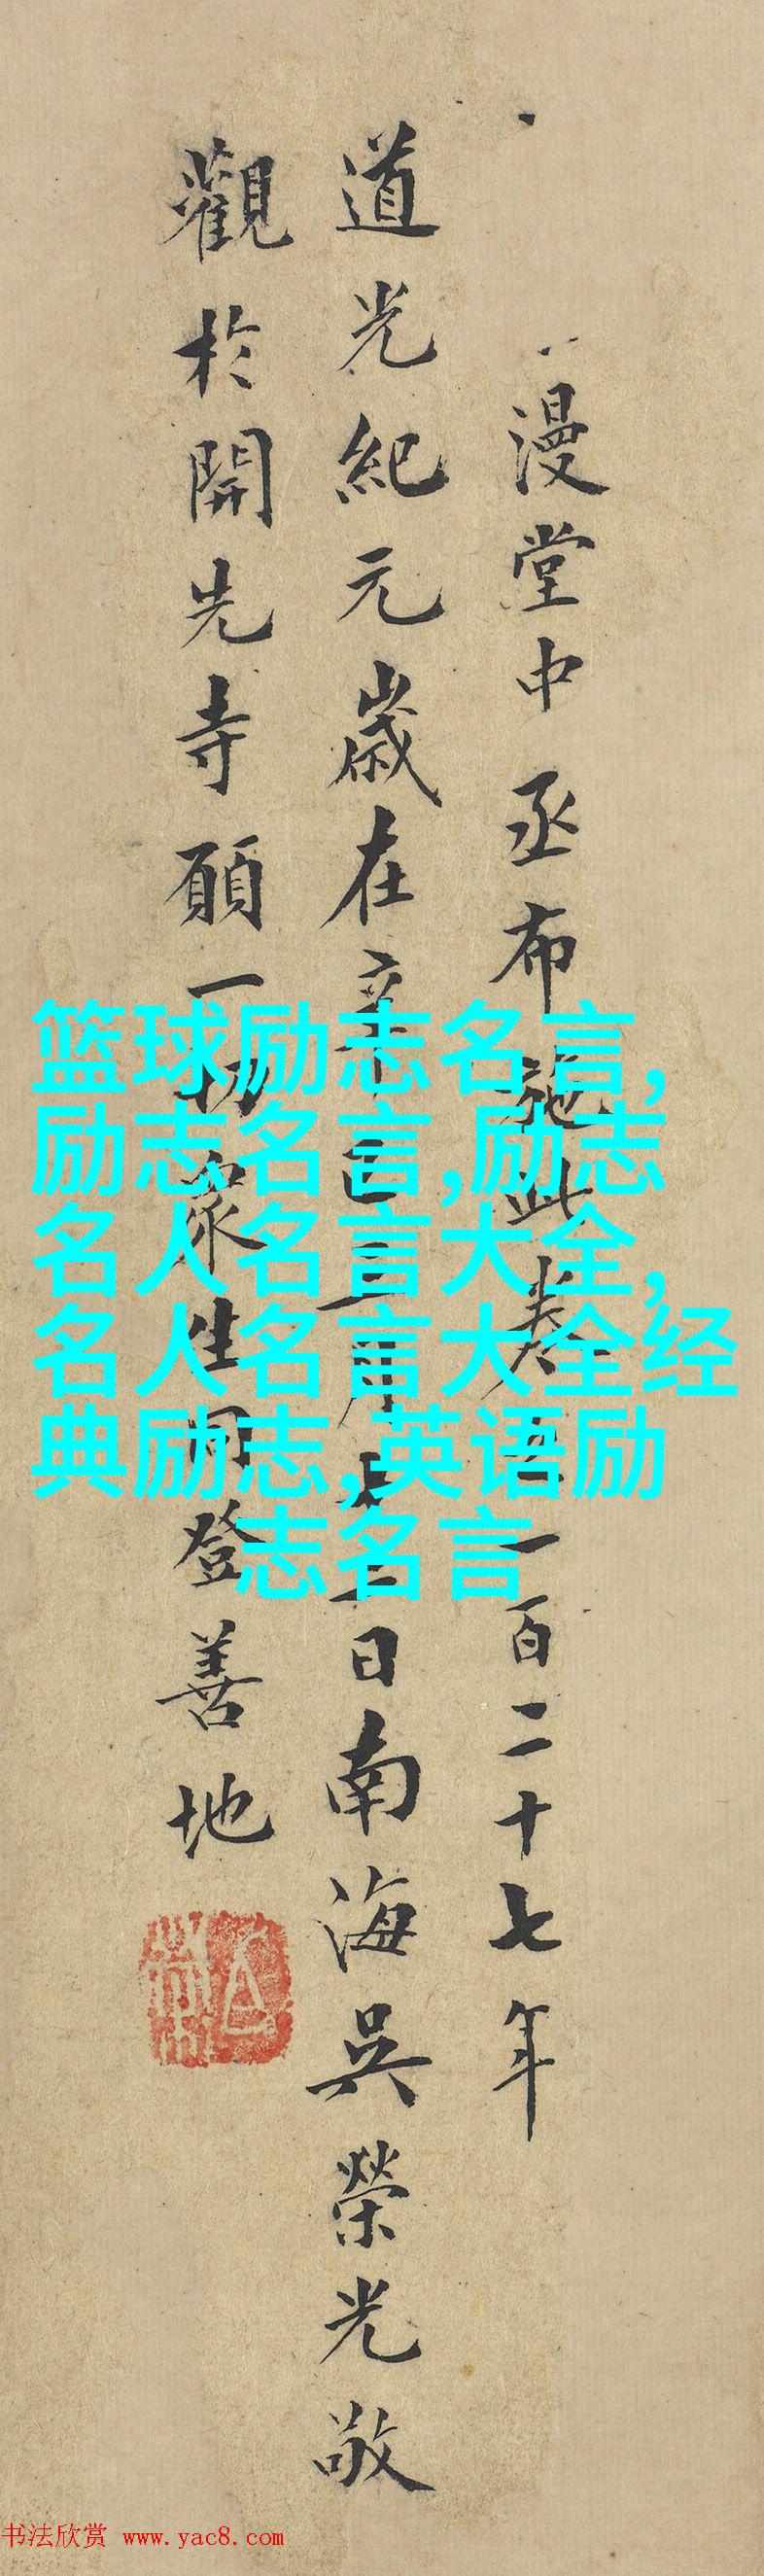 漫堂中丞布施此卷一百二十七年
道光紀元歲在辛巳三月日南海吳榮光敬
觀於開先寺願一切眾生同登善地
篮球励志名言,
励志名言,励志
名人名言大全,
名人名言大全经
典励志,英语励
志名言
书法欣赏 www.yac8.com